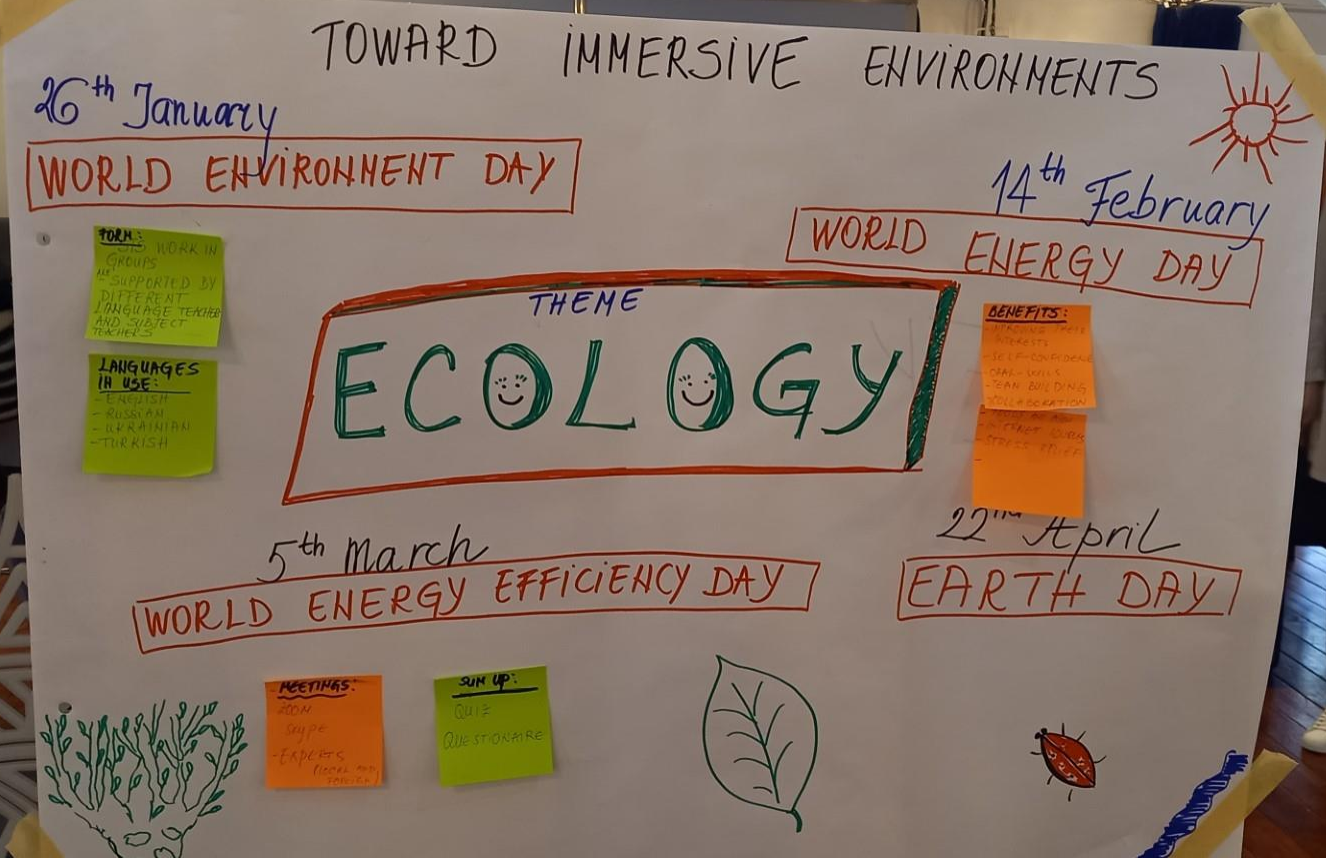 TOWARD IMMERSIVE ENVIRONMENTS
26th January
WORLD ENVIRONMENT DAY
14th February
WORLD ENERGY DAY
FORM:
WORK IN
GROUPS
- SUPPORTED BY
DIFFERENT
LANGUAGE TEACHER
AND SUBJECT
TEACHERS
LANGUAGES
IN USE:
- ENGLISH
- RUSSIAN
- UKRAINIAN
- TURKISH
THEME
ECOLOGY
BENEFITS:
INTERESTS
- SELF-CONFIDENCE
- TEAM BUILDING
COLLABORATION
- STRESS RELIEF
5th March
WORLD ENERGY EFFICIENCY DAY
22nd April
EARTH DAY
MEETINGS:
ZOOM
Skype
- EXPERTS
SUM UP:
QUIZ
QUESTIONAIRE